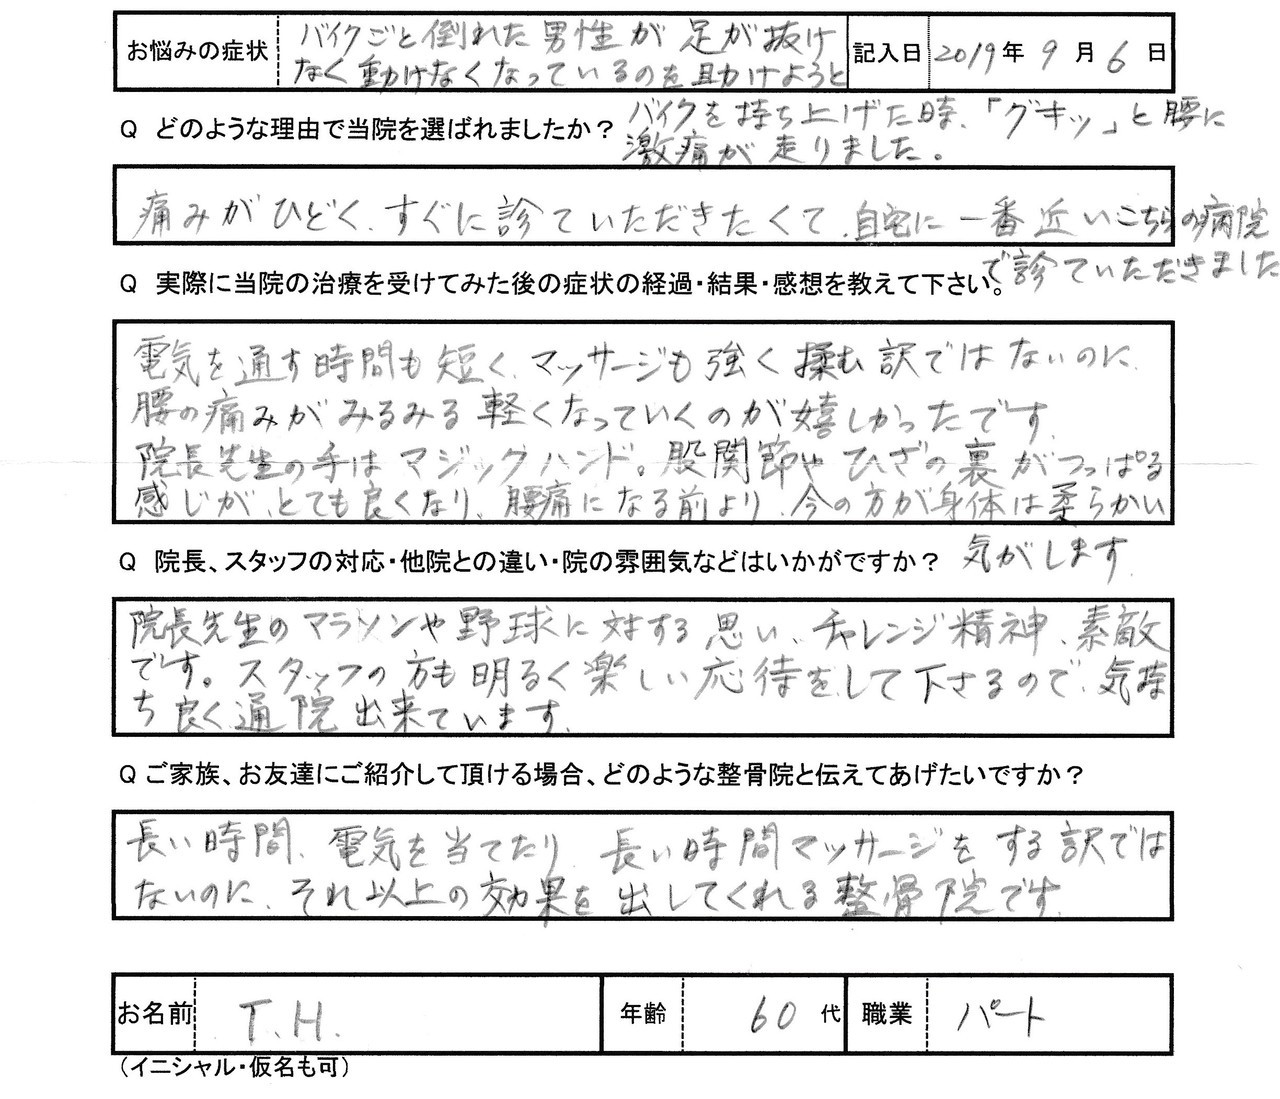 お悩みの症状 バイクごと倒れた男性が足が抜け 記入日 2019年9月6日
なく動けなくなっているのを助けようと
バイクを持ち上げた時、「グキッ」と腰に
Q どのような理由で当院を選ばれましたか？
激痛が走りました。
痛みがひどく、すぐに診ていただきたくて、自宅に一番近いこちらの病院
で診ていただきました
Q 実際に当院の治療を受けてみた後の症状の経過・結果・感想を教えて下さい。
電気を通す時間も短く、マッサージも強く揉む訳ではないのに、
腰の痛みがみるみる軽くなっていくのが嬉しかったです。
院長先生の手はマジックハンド。股関節やひざの裏がつっぱる
感じが、とても良くなり、腰痛になる前より、今の方が身体は柔らかい
気がします
Q 院長、スタッフの対応・他院との違い・院の雰囲気などはいかがですか？
院長先生のマラソンや野球に対する思い、チャレンジ精神、素敵
です。スタッフの方も明るく楽しい応待をして下さるので、気持
ち良く通院出来ています。
Q ご家族、お友達にご紹介して頂ける場合、どのような整骨院と伝えてあげたいですか？
長い時間、電気を当てたり、長い時間マッサージをする訳では
ないのに、それ以上の効果を出してくれる整骨院です。
お名前 T.H. 年齢 60代 職業 パート
（イニシャル・仮名も可）